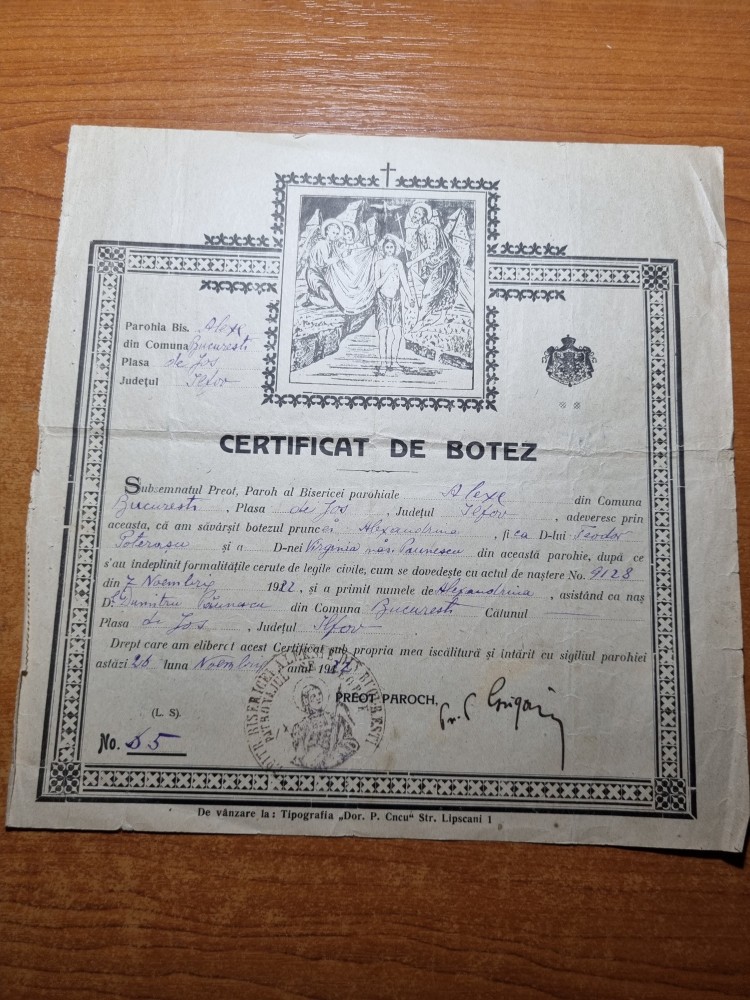 Parohia Bis. Alexe
din Comuna Bucuresti
Plasa de Jos
Județul Ilfov
CERTIFICAT DE BOTEZ
Subzemnatul Preot, Paroh al Bisericei parohiale Alexe din Comuna
Bucuresti, Plasa de Jos, Județul Ilfov, adeveresc prin
aceasta, că am săvârșit botezul pruncei Alexandrina, fica D-lui Teodor
Poterașu și a D-nei Virginia năs. Paunescu din această parohie, după ce
s'au îndeplinit formalitățile cerute de legile civile, cum se dovedește cu actul de naștere No. 9128
din 7 Noembrie 1922, și a primit numele de Alexandrina, asistând ca naș
D. Dumitru Păunescu din Comuna Bucuresti Cătunul
Plasa de Jos, Județul Ilfov
Drept care am eliberat acest Certificat sub propria mea iscălitură și întărit cu sigiliul parohiei
astăzi 26 luna Noembrie anul 19
PREOT PAROCH,
(L. S).
No. 55
De vânzare la: Tipografia „Dor. P. Cucu" Str. Lipscani 1